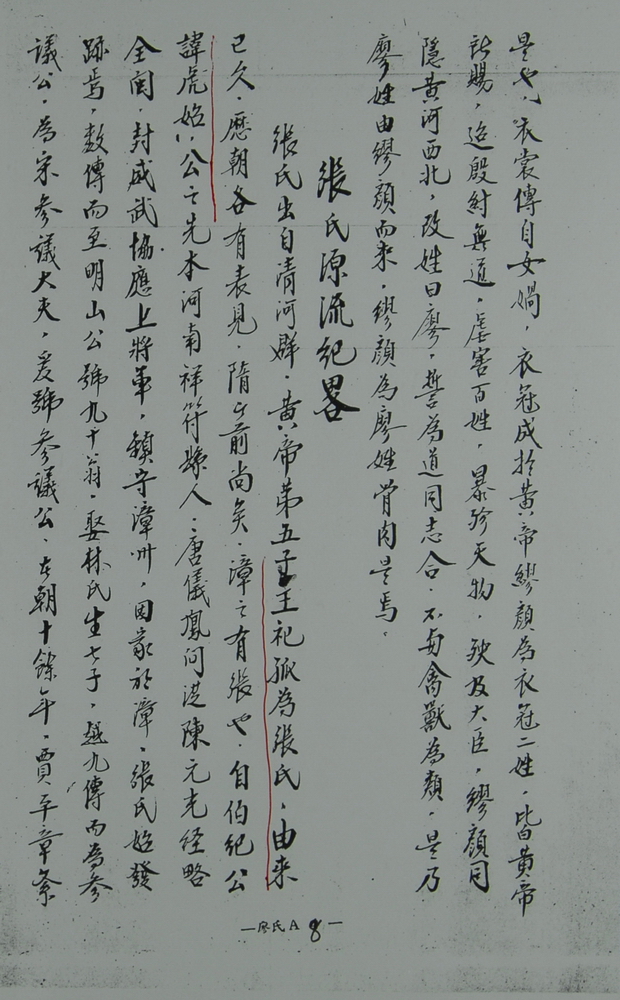 是也、衣裳傳自女媧，衣冠成於黃帝繆顏為衣冠二姓，皆黃帝
所賜，迨殷紂無道，虐害百姓，暴殄天物，殃及大臣，繆顏同
隱黃河西北，改姓曰廖，誓為道同志合，不與禽獸為類，是乃
廖姓由繆顏而來，繆顏為廖姓骨肉是焉。
張氏源流紀畧
張氏出自清河郡，黃帝第五子王祀孤為張氏，由來
已久，歷朝各有表見，隋以前尚矣，漳之有張也，自伯紀公
諱虎始，公之先本河南祥符縣人，唐儀鳳間從陳元光經略
全閩，封威武協應上將軍，鎮守漳州，因家於漳，張氏始發
跡焉，數傳而至明山公號九十翁，娶林氏生七子，越九傳而為參
議公，為宋參議大夫，爰號參議公，在朝十餘年，賈平章柰
—廖氏A 8—